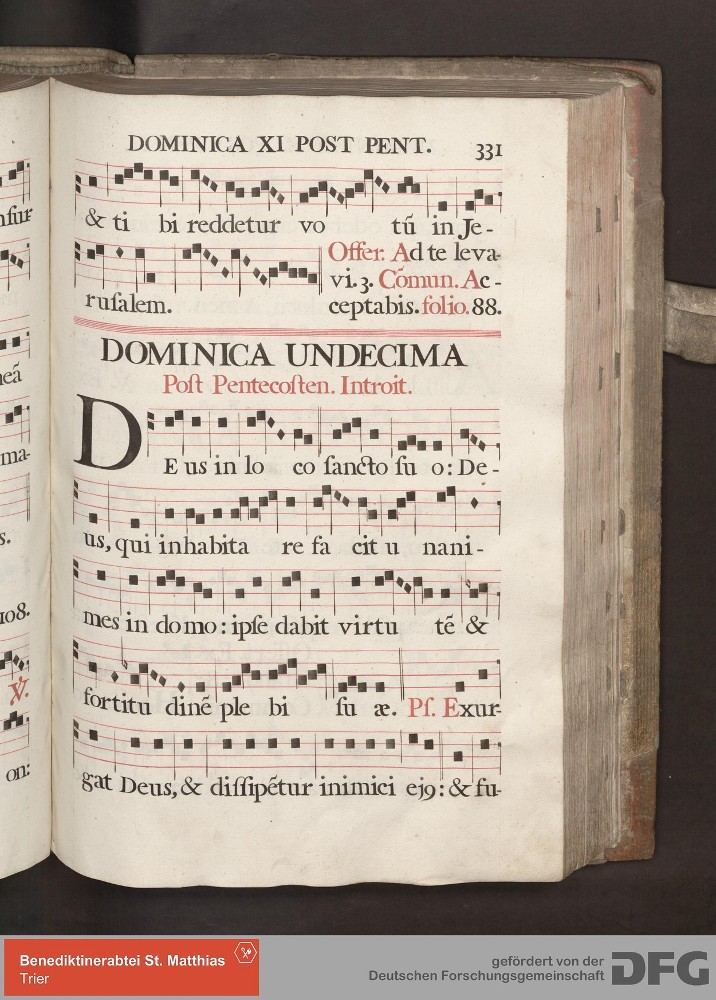 DOMINICA XI POST PENT. 331
& ti bi reddetur vo tū in Je-
Offer. Ad te leva-
vi. 3. Cōmun. Ac-
rusalem. ceptabis. folio. 88.
DOMINICA UNDECIMA
Post Pentecosten. Introit.
DE us in lo co sancto su o: De-
us, qui inhabita re fa cit u nani-
mes in domo: ipse dabit virtu tē &
fortitu dinē ple bi su æ. Ps. Exur-
gat Deus, & dissipētur inimici ejꝰ: & fu-
nsur
neā
ma-
s.
108.
℣.
on:
Benediktinerabtei St. Matthias
Trier
gefördert von der
Deutschen Forschungsgemeinschaft
DFG